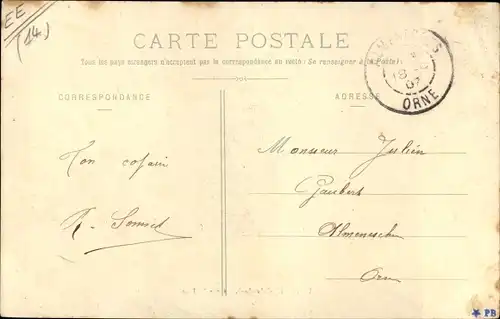 EE
(14)
CARTE POSTALE
Tous les pays étrangers n'acceptent pas la correspondance au recto: (Se renseigner à la Poste).
CORRESPONDANCE
ADRESSE
ORNE
Monsieur Julien
Ton cousin
Almenesche
Orn
PB